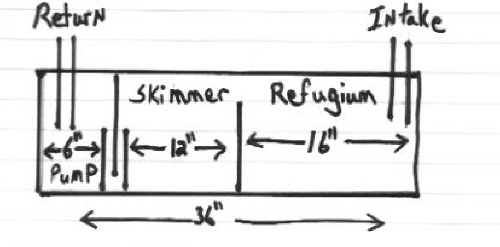 Return
Intake
Skimmer
Refugium
6"
12"
16"
Pump
36"